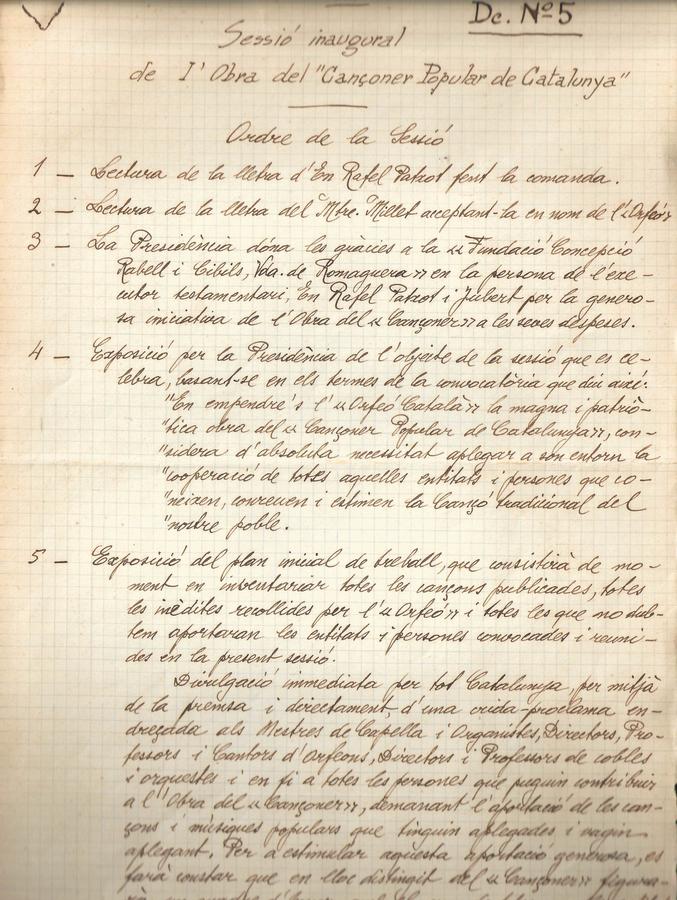 Dc. Nº 5
Sessió inaugural
de l'Obra del "Cançoner Popular de Catalunya"
Ordre de la Sessió
1 — Lectura de la lletra d'En Rafel Patxot fent la comanda.
2 — Lectura de la lletra del Mtre. Millet acceptant-la en nom de l'«Orfeó»
3 — La Presidència dóna les gràcies a la «Fundació Concepció
Rabell i Cibils, Vda. de Romaguera» en la persona de l'exe-
cutor testamentari, En Rafel Patxot i Jubert per la genero-
sa iniciativa de l'Obra del «Cançoner» a les seves despeses.
4 — Exposició per la Presidència de l'objecte de la sessió que es ce-
lebra, basant-se en els termes de la convocatòria que diu així:
"En empendre's l'«Orfeó Català» la magna i patriò-
"tica obra del «Cançoner Popular de Catalunya», con-
"sidera d'absoluta necessitat aplegar a son entorn la
"cooperació de totes aquelles entitats i persones que co-
"neixen, conreuen i estimen la Cançó tradicional del
"nostre poble.
5 — Exposició del plan inicial de treball, que consistirà de mo-
ment en inventariar totes les cançons publicades, totes
les inèdites recollides per l'«Orfeó» i totes les que no dub-
tem aportaran les entitats i persones convocades i reuni-
des en la present sessió.
Divulgació immediata per tot Catalunya, per mitjà
de la premsa i directament, d'una crida-proclama en-
dreçada als Mestres de Capella i Organistes, Directors, Pro-
fessors i Cantors d'Orfeons, Directors i Professors de cobles
i orquestes i en fi a totes les persones que puguin contribuir
a l'Obra del «Cançoner», demanant l'aportació de les can-
çons i músiques populars que tinguin aplegades i vagin
aplegant. Per a estimular aquesta aportació generosa, es
farà constar que en lloc distingit del «Cançoner» figura-